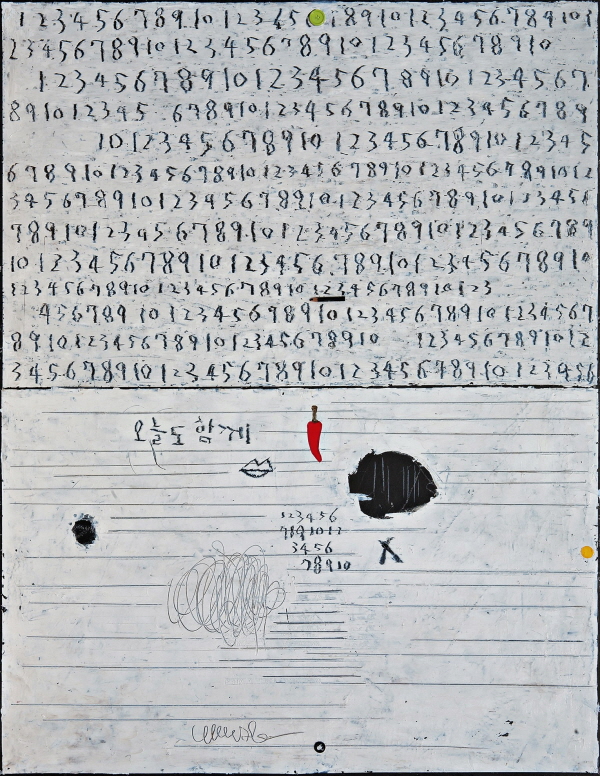 1 2 3 4 5 6 7 8 9 10 1 2 3 4 5 6 7 8 9 10 1 2 3 4 5 6 7 8 9 10 1
2 3 4 5 6 7 8 9 10 1 2 3 4 5 6 7 8 9 10 1 2 3 4 5 6 7 8 9 10
1 2 3 4 5 6 7 8 9 10 1 2 3 4 5 6 7 8 9 10 1 2 3 4 5 6 7
8 9 10 1 2 3 4 5 6 7 8 9 10 1 2 3 4 5 6 7 8 9 10 1 2 3 4 5 6 7 8 9
10 1 2 3 4 5 6 7 8 9 10 1 2 3 4 5 6 7 8 9 10 1 2 3 4 5
6 7 8 9 10 1 2 3 4 5 6 7 8 9 10 1 2 3 4 5 6 7 8 9 10 1 2 3 4 5 6 7 8 9 10 1 2
3 4 5 6 7 8 9 10 1 2 3 4 5 6 7 8 9 10 1 2 3 4 5 6 7 8 9 10 1 2 3 4 5 6
7 8 9 10 1 2 3 4 5 6 7 8 9 10 1 2 3 4 5 6 7 8 9 10 1 2 3 4 5 6 7 8 9
10 1 2 3 4 5 6 7 8 9 10 1 2 3 4 5 6 7 8 9 10 1 2 3 4 5 6 7 8 9 10
1 2 3 4 5 6 7 8 9 10 1 2 3 4 5 6 7 8 9 10 1 2 3 4 5 6 7 8 9 10 1 2 3
4 5 6 7 8 9 10 1 2 3 4 5 6 7 8 9 10 1 2 3 4 5 6 7 8 9 10 1 2 3 4 5 6 7
8 9 10 1 2 3 4 5 6 7 8 9 10 1 2 3 4 5 6 7 8 9 10 1 2 3 4 5 6 7 8 9 10 1 2
3 4 5 6 7 8 9 10 1 2 3 4 5 6 7 8 9 10 1 2 3 4 5 6 7 8 9 10 1 2 3 4 5 6
오늘도 함께
1 2 3 4 5 6
7 8 9 10 1 2
3 4 5 6
7 8 9 10
X